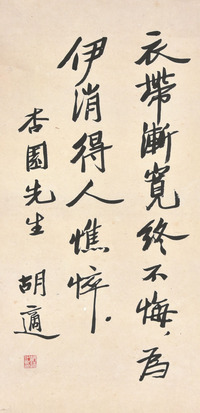 衣帶漸寬終不悔，為
伊消得人憔悴．
杏園先生
胡適